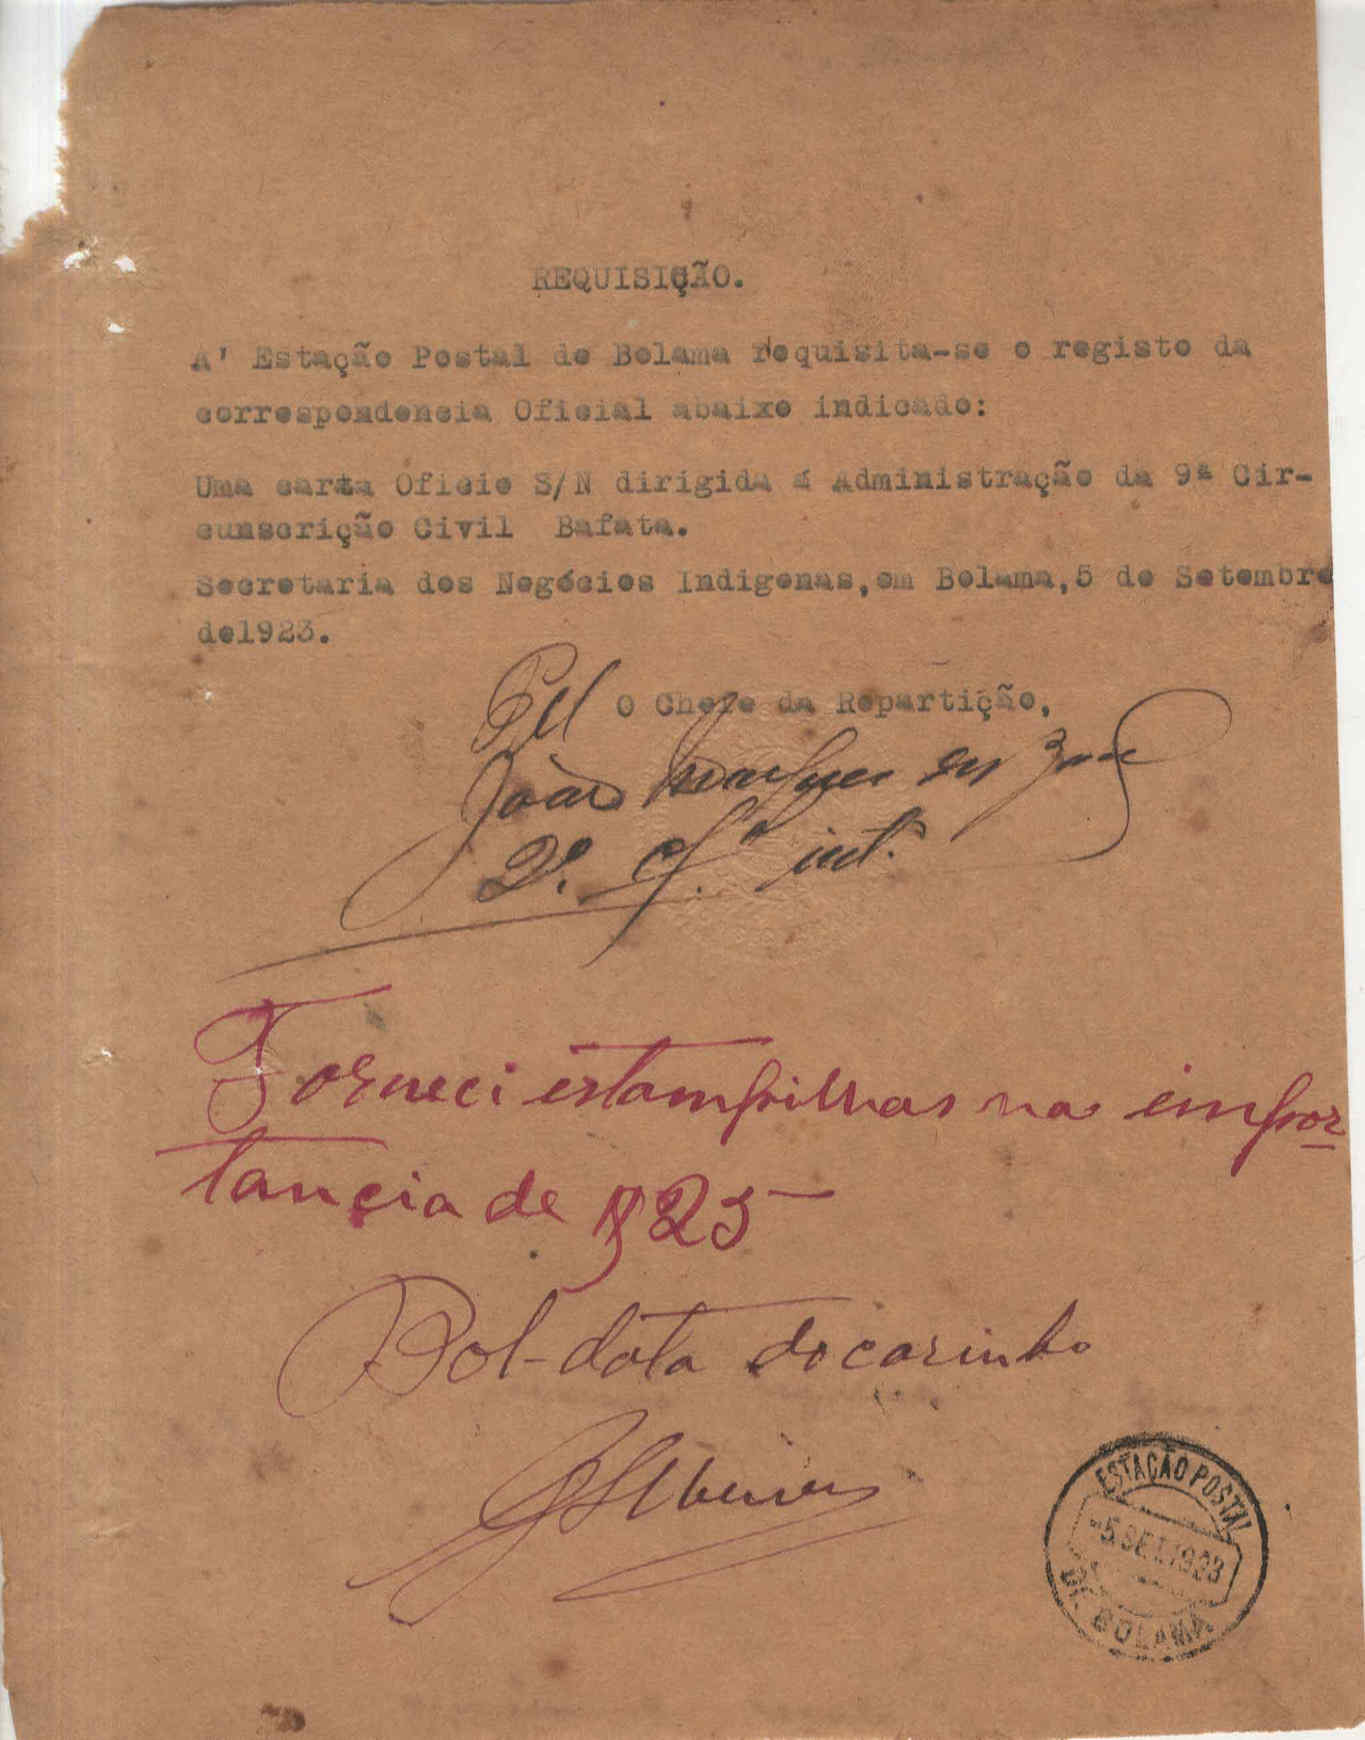 REQUISIÇÃO.
A' Estação Postal de Bolama requisita-se o registo da
correspondencia Oficial abaixo indicado:
Uma carta Oficio S/N dirigida á Administração da 9ª Cir-
cunscrição Civil Bafata.
Secretaria dos Negócios Indigenas,em Bolama,5 de Setembro
de1923.
O Chefe da Repartição,
João Marques
2º. int.
Forneci estampilhas na impor
tancia de $25
Bol-data do carimbo
ESTAÇÃO POSTAL
-5 SET.1923
DE BOLAMA